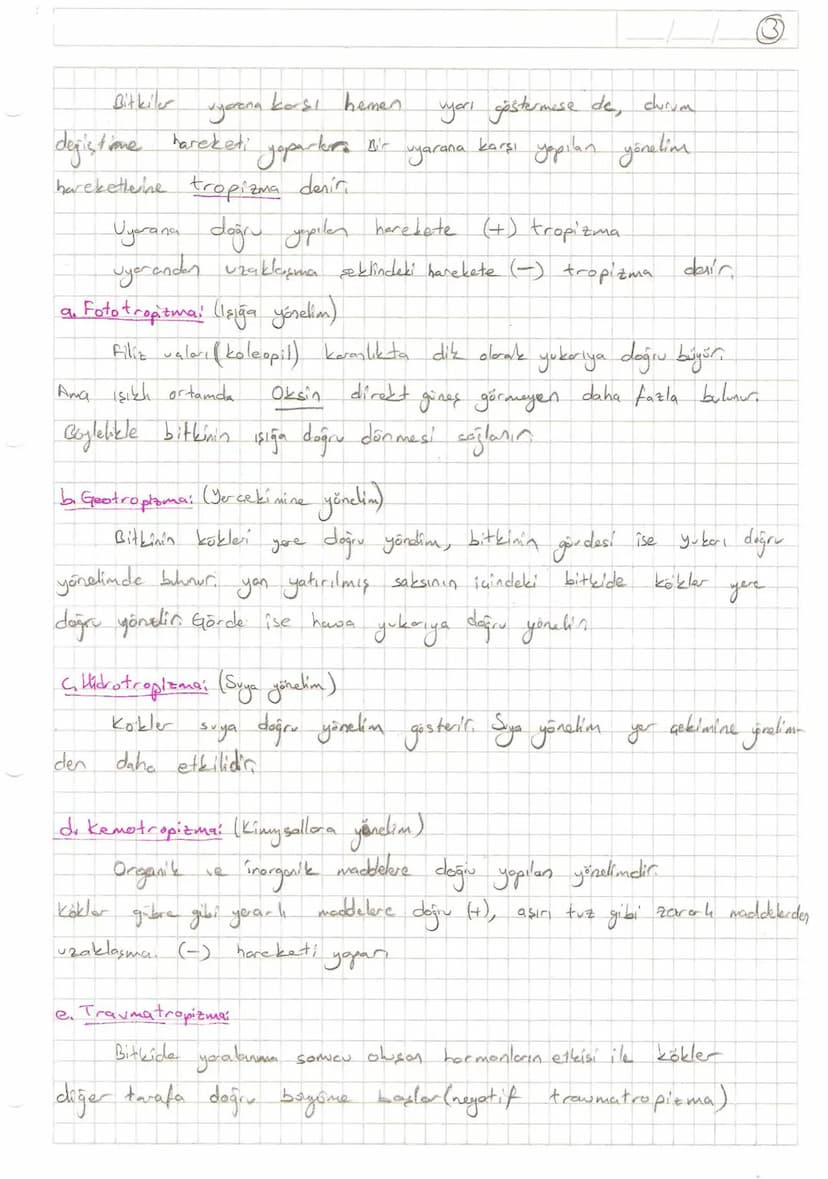 3
Bitkiler uyarana karşı hemen uyarı göstermese de, durum
değiştime hareketi yaparlar. Bir uyarana karşı yapılan yönelim
hareketlerine tropizma denir.
Uyarana doğru yapılan harekete (+) tropizma
uyarandan uzaklaşma şeklindeki harekete (-) tropizma denir.
a. Fototropizma: (Işığa yönelim)
Filiz uçları (koleopil) karanlıkta dik olarak yukarıya doğru büyür.
Ama ışıklı ortamda Oksin direkt güneş görmeyen daha fazla bulunur.
Böylelikle bitkinin ışığa doğru dönmesi sağlanır.
b. Geotropizma: (Yerçekimine yönelim)
Bitkinin kökleri yere doğru yönelim, bitkinin gövdesi ise yukarı doğru
yönelimde bulunur. yan yatırılmış saksının içindeki bitkide kökler yere
doğru yönelir. Görde ise hava yukarıya doğru yönelir.
c. Hidrotropizma: (Suya yönelim)
Kökler suya doğru yönelim gösterir. Suya yönelim yer çekimine yönelim-
den daha etkilidir.
d. Kemotropizma: (Kimysallara yönelim)
Organik ve inorganik maddelere doğru yapılan yönelimdir.
Kökler gübre gibi yararlı maddelere doğru (+), aşırı tuz gibi zararlı maddelerden
uzaklaşma (-) hareketi yapar.
e. Travmatropizma:
Bitkide yaralanma sonucu oluşan hormonların etkisi ile kökler
diğer tarafa doğru büyüme başlar (negatif travmatropizma)